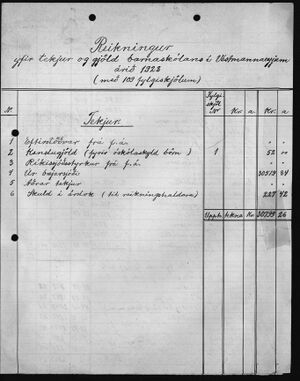 Reikningur
yfir tekjur og gjöld barnaskólans í Vestmannaeyjum
árið 1923
(með 103 fylgiskjölum)
N. Tekjur. Fylgi skjöl Nr Kr. a. Kr. a
1 Eftirstöðvar frá f. á. " "
2 Kenslugjöld (fyrir óskólaskyld börn) 1 52 00
3 Ríkissjóðsstyrkur frá f. á. " "
4 Úr bæjarsjóði 30519 84
5 Aðrar tekjur " "
6 Skuld í árslok (til reikningshaldara) 227 42
Upph. tekna Kr 30799 26